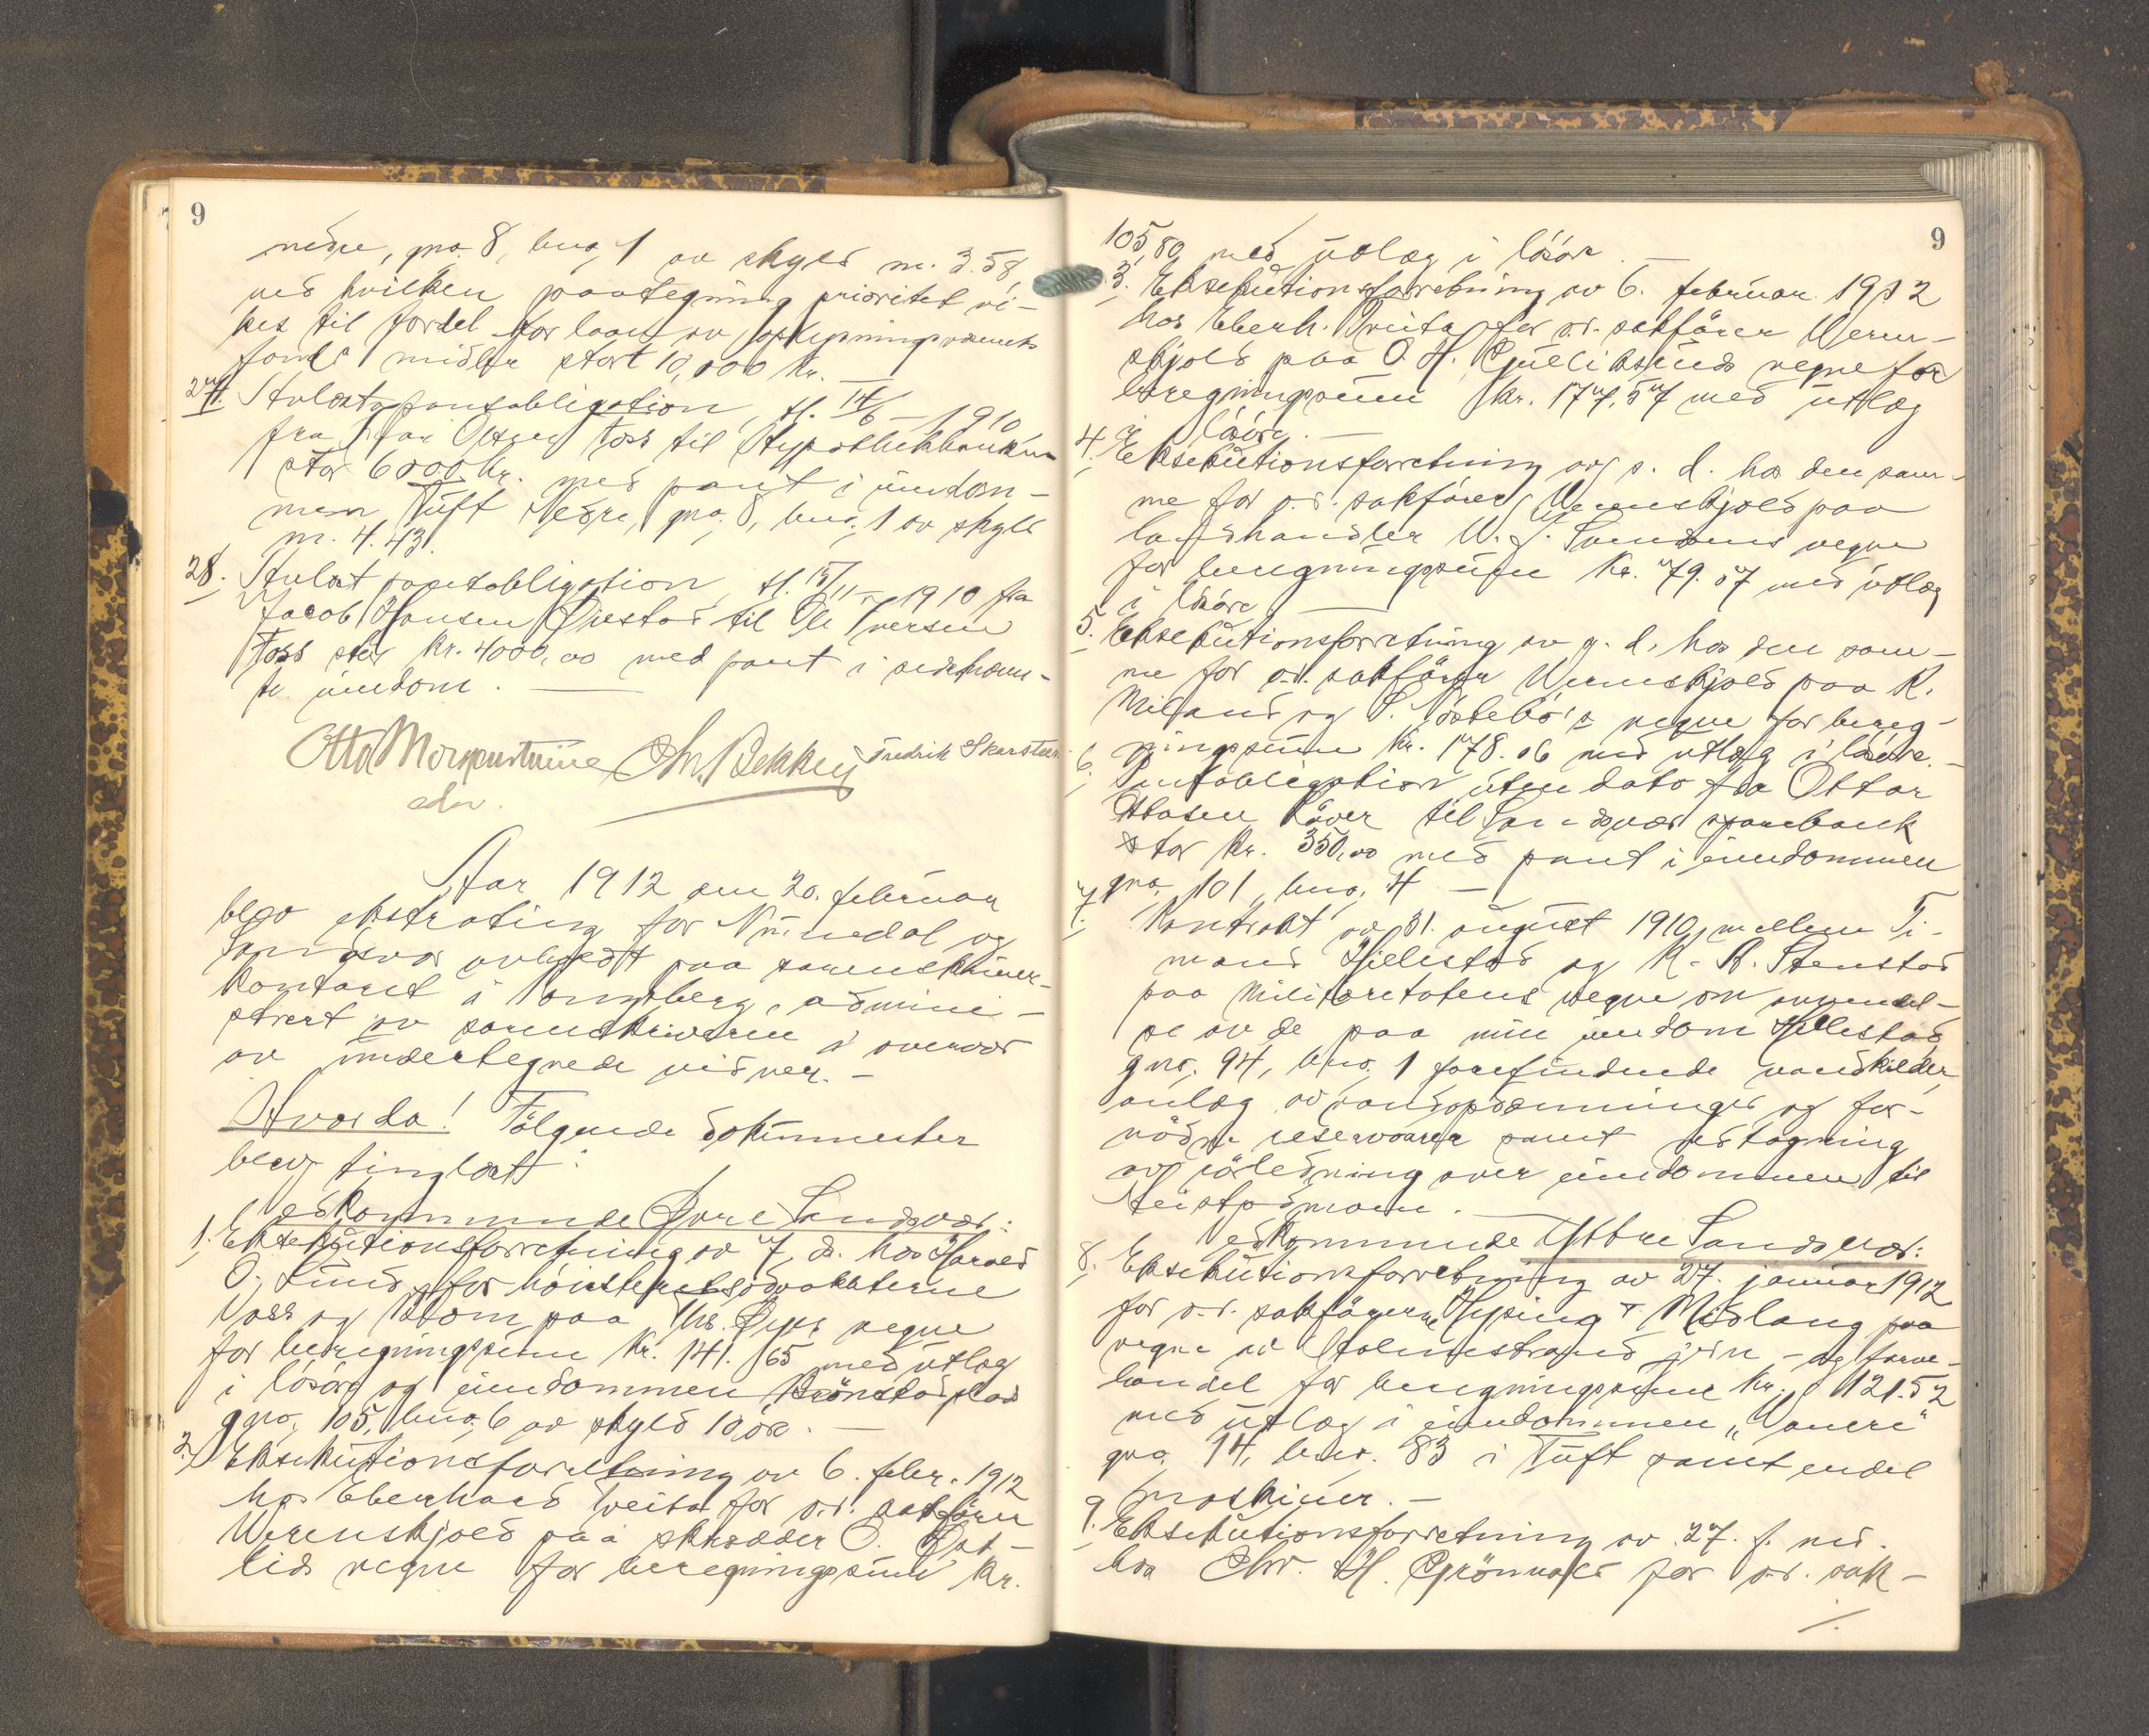 9
nedre, gno. 8, bno. 1 av skyld m. 3.58
ved hvilken paategning prioritet vi-
kes til fordel for laan av oplysningsvæsenets
fonds midler stort 10,000 kr. —
27. Avlæst pantobligation, tl. 14/6 – 1910
fra Ivar Olsen Foss til Hypothekbanken
stor 6000 kr. med pant i eiendom-
men Tuft Nedre, gno. 8, bno. 1 av skyld
m. 4.43.
28. Avlæst panteobligation, tl. 15/11 – 1910 fra
Jacob Hansen til Ole Iversen
Foss stor kr. 4000,00 med pant i sidstnævn-
te eiendom. —
Otto Chr. Bekker Fredrik Skarsteen
edsv.
Aar 1912 den 20. februar
blev ekstrating for Numedal og
Sandsvær avholdt paa sorenskriver-
kontoret i Kongsberg, admini-
strert av sorenskriveren i overvær
av undertegnede vidner. —
Hvorda! Følgende dokumenter
blev tinglæst:
Vedkommende Øvre Sandsvær:
1. Eksekutionsforretning av 7. ds. hos Harald
O. Lund for høiesteretsadvokaterne
Voss og Blom paa Chr. vegne
for beregningssum kr. 141.65 med utlæg
i løsøre og eiendommen
gno. 105, bno. 6 av skyld 10 øre. —
2. Eksekutionsforretning av 6. febr. 1912
hos Eberhard Treita for o.r. sakfører
Werenskjold paa skrædder O.
lids vegne for beregningssum kr.
9
105,80 med utlæg i løsøre. —
3. Eksekutionsforretning av 6. februar 1912
hos Eberh. Treita for o.r. sakfører Weren-
skjold paa O. H. Gulliksruds vegne for
beregningssum kr. 177,57 med utlæg
i løsøre. —
4. Eksekutionsforretning av s. d. hos den sam-
me for o.r. sakfører Werenskjold paa
landhandler W. J. Svendsens vegne
for beregningssum kr. 79.57 med utlæg
i løsøre —
5. Eksekutionsforretning av s. d. hos den sam-
me for o.r. sakfører Werenskjold paa K.
Miland og S. Nøstebø's vegne for bereg-
ningssum kr. 178.06 med utlæg i løsøre. —
6. Pantobligation uten dato fra Ottar
Ottosen Raaen til Sandsvær sparebank
stor kr. 350,00 med pant i eiendommen
gno. 101, bno. 4 —
7. Kontrakt av 31. august 1910 mellem Ti-
mand Hillestad og K. A. Stenstad
paa Militæretatens vegne om anvendel-
se av de paa min eiendom Hillestad
gno. 94, bno. 1 forefindende vandkilder,
anlæg av vandopdæmninger og for-
nødne reservoarer samt nedlægning
av rørledning over eiendommen til
Heistadmoen. —
Vedkommende Ytre Sandsvær:
8. Eksekutionsforretning av 27. januar 1912
for o.r. sakførerne Hesping & Midlang paa
vegne av Holmestrands jern- og farve-
handel for beregningssum kr. 121.52
med utlæg i eiendommen „Vaneri"
gno. 14, bno. 83 i Tuft samt endel
maskiner. —
9. Eksekutionsforretning av 27. f. md.
hos Chr. H. Grønvold for o.r. sak-
./.